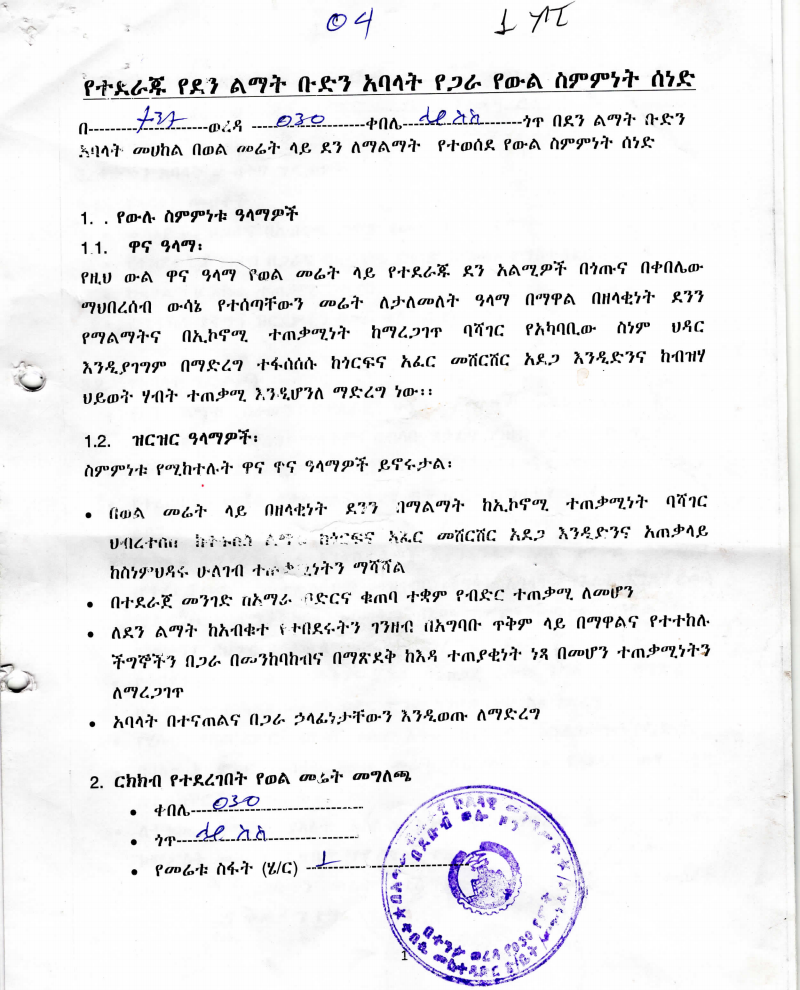 04
የተደራጁ የደን ልማት ቡድን አባላት የጋራ የውል ስምምነት ሰነድ
በ-----------------------ወረዳ ---030---ቀበሌ-----------------------ጎጥ በደን ልማት ቡድን
አባላት መሀከል በወል መሬት ላይ ደን ለማልማት የተወሰደ የውል ስምምነት ሰነድ
1. . የውሉ ስምምነቱ ዓላማዎች
1.1. ዋና ዓላማ፡
የዚህ ውል ዋና ዓላማ የወል መሬት ላይ የተደራጁ ደን አልሚዎች በጎጡና በቀበሌው
ማህበረሰብ ውሳኔ የተሰጣቸውን መሬት ለታለመለት ዓላማ በማዋል በዘላቂነት ደንን
የማልማትና በኢኮኖሚ ተጠቃሚነት ከማረጋገጥ ባሻገር የአካባቢው ስነም ህዳር
እንዲያገግም በማድረግ ተፋሰሰሱ ከጎርፍና አፈር መሸርሸር አደጋ እንዲድንና ከብዝሃ
ህይወት ሃብት ተጠቃሚ እንዲሆንለ ማድረግ ነው፡፡
1.2. ዝርዝር ዓላማዎች፡
ስምምነቱ የሚከተሉት ዋና ዋና ዓላማዎች ይኖሩታል፡
• በወል መሬት ላይ በዘላቂነት ደንን በማልማት ከኢኮኖሚ ተጠቃሚነት ባሻገር
ህብረተሰቡ ከጎርፍና አፈር መሸርሸር አደጋ እንዲድንና አጠቃላይ
ከስነምህዳሩ ሁለገብ ተጠቃሚነትን ማሻሻል
• በተደራጀ መንገድ ከአማራ ብድርና ቁጠባ ተቋም የብድር ተጠቃሚ ለመሆን
• ለደን ልማት ከአብቁተ የተበደሩትን ገንዘብ በአግባቡ ጥቅም ላይ በማዋልና የተተከሉ
ችግኞችን በጋራ በመንከባከብና በማጽደቅ ከእዳ ተጠያቂነት ነጻ በመሆን ተጠቃሚነትን
ለማረጋገጥ
• አባላት በተናጠልና በጋራ ኃላፊነታቸውን እንዲወጡ ለማድረግ
2. ርክክብ የተደረገበት የወል መሬት መግለጫ
• ቀበሌ---030---
• ጎጥ-----------------------
• የመሬቱ ስፋት (ሄ/ር) ---1---
1